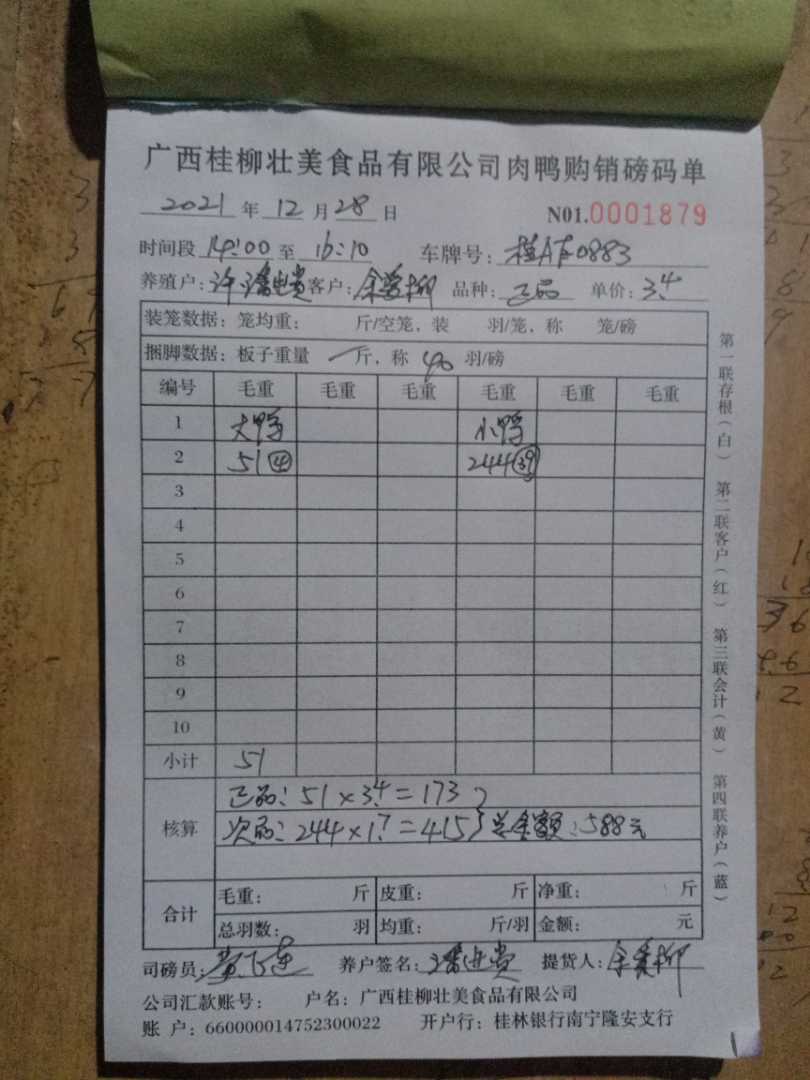 广西桂柳壮美食品有限公司肉鸭购销磅码单
2021 年 12 月 28 日 N01.0001879
时间段 14:00 至 16:10 车牌号: 0883
养殖户: 许 潘进贵 客户: 余爱柳 品种: 正品 单价: 3.4
装笼数据: 笼均重: 斤/空笼, 装 羽/笼, 称 笼/磅
捆脚数据: 板子重量 斤, 称 40 羽/磅
编号 毛重 毛重 毛重 毛重 毛重 毛重
1 大鸭 小鸭
2 51 ④ 244 39
3
4
5
6
7
8
9
10
小计 51
核算 正品: 51×3.4=173
次品: 244×1.7=415 总金额: 588元
合计 毛重: 斤 皮重: 斤 净重: 斤
总羽数: 羽 均重: 斤/羽 金额: 元
司磅员: 黄 养户签名: 潘进贵 提货人: 余爱柳
公司汇款账号: 户名: 广西桂柳壮美食品有限公司
账 户: 660000014752300022 开户行: 桂林银行南宁隆安支行
第一联存根(白) 第二联客户(红) 第三联会计(黄) 第四联养户(蓝)